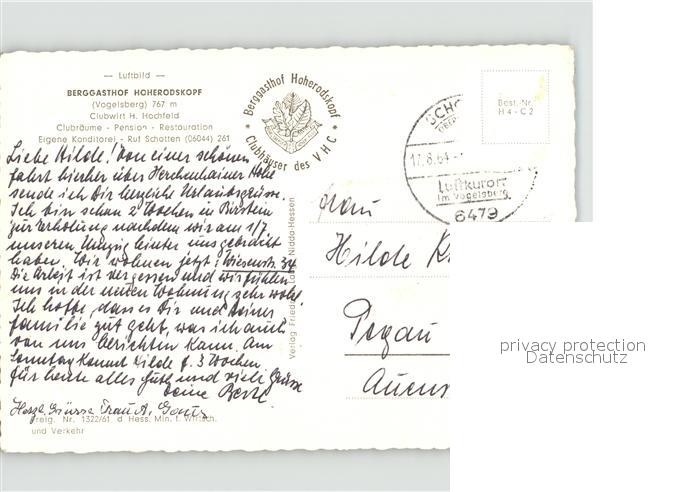 — Luftbild —
BERGGASTHOF HOHERODSKOPF
(Vogelsberg) 767 m
Clubwirt H. Hochfeld
Clubräume - Pension - Restauration
Eigene Konditorei - Ruf Schotten (06044) 261
Berggasthof Hoherodskopf
Clubhäuser des V H C
Best.-Nr.
H 4 - C 2
17.8.64
Luftkurort
im Vogelsberg
6479
Liebe Hilde! Von einer schönen
Fahrt hierher über Herchenhainer Höhe
sende ich Dir herzliche Urlaubsgrüsse.
Ich bin schon 2 Wochen in Birstein
zur Erholung nachdem wir am 1/7
unseren Umzug hinter uns gebracht
haben. Wir wohnen jetzt: Wiesenstr. 34
Die Arbeit ist vergessen und wir fühlen
uns in der neuen Wohnung sehr wohl.
Ich hoffe, dass es Dir und Deiner
Familie gut geht, was ich auch
von uns berichten kann. Am
Sonntag kommt Hilde f. 3 Wochen.
Für heute alles Gute und viele Grüsse
Deine
Herzl. Grüsse
Frau
Hilde
Pegau
Verlag Friedr.
Nidda-Hessen
Freig. Nr. 1322/61 d Hess. Min. f. Wirtsch.
und Verkehr
privacy protection
Datenschutz